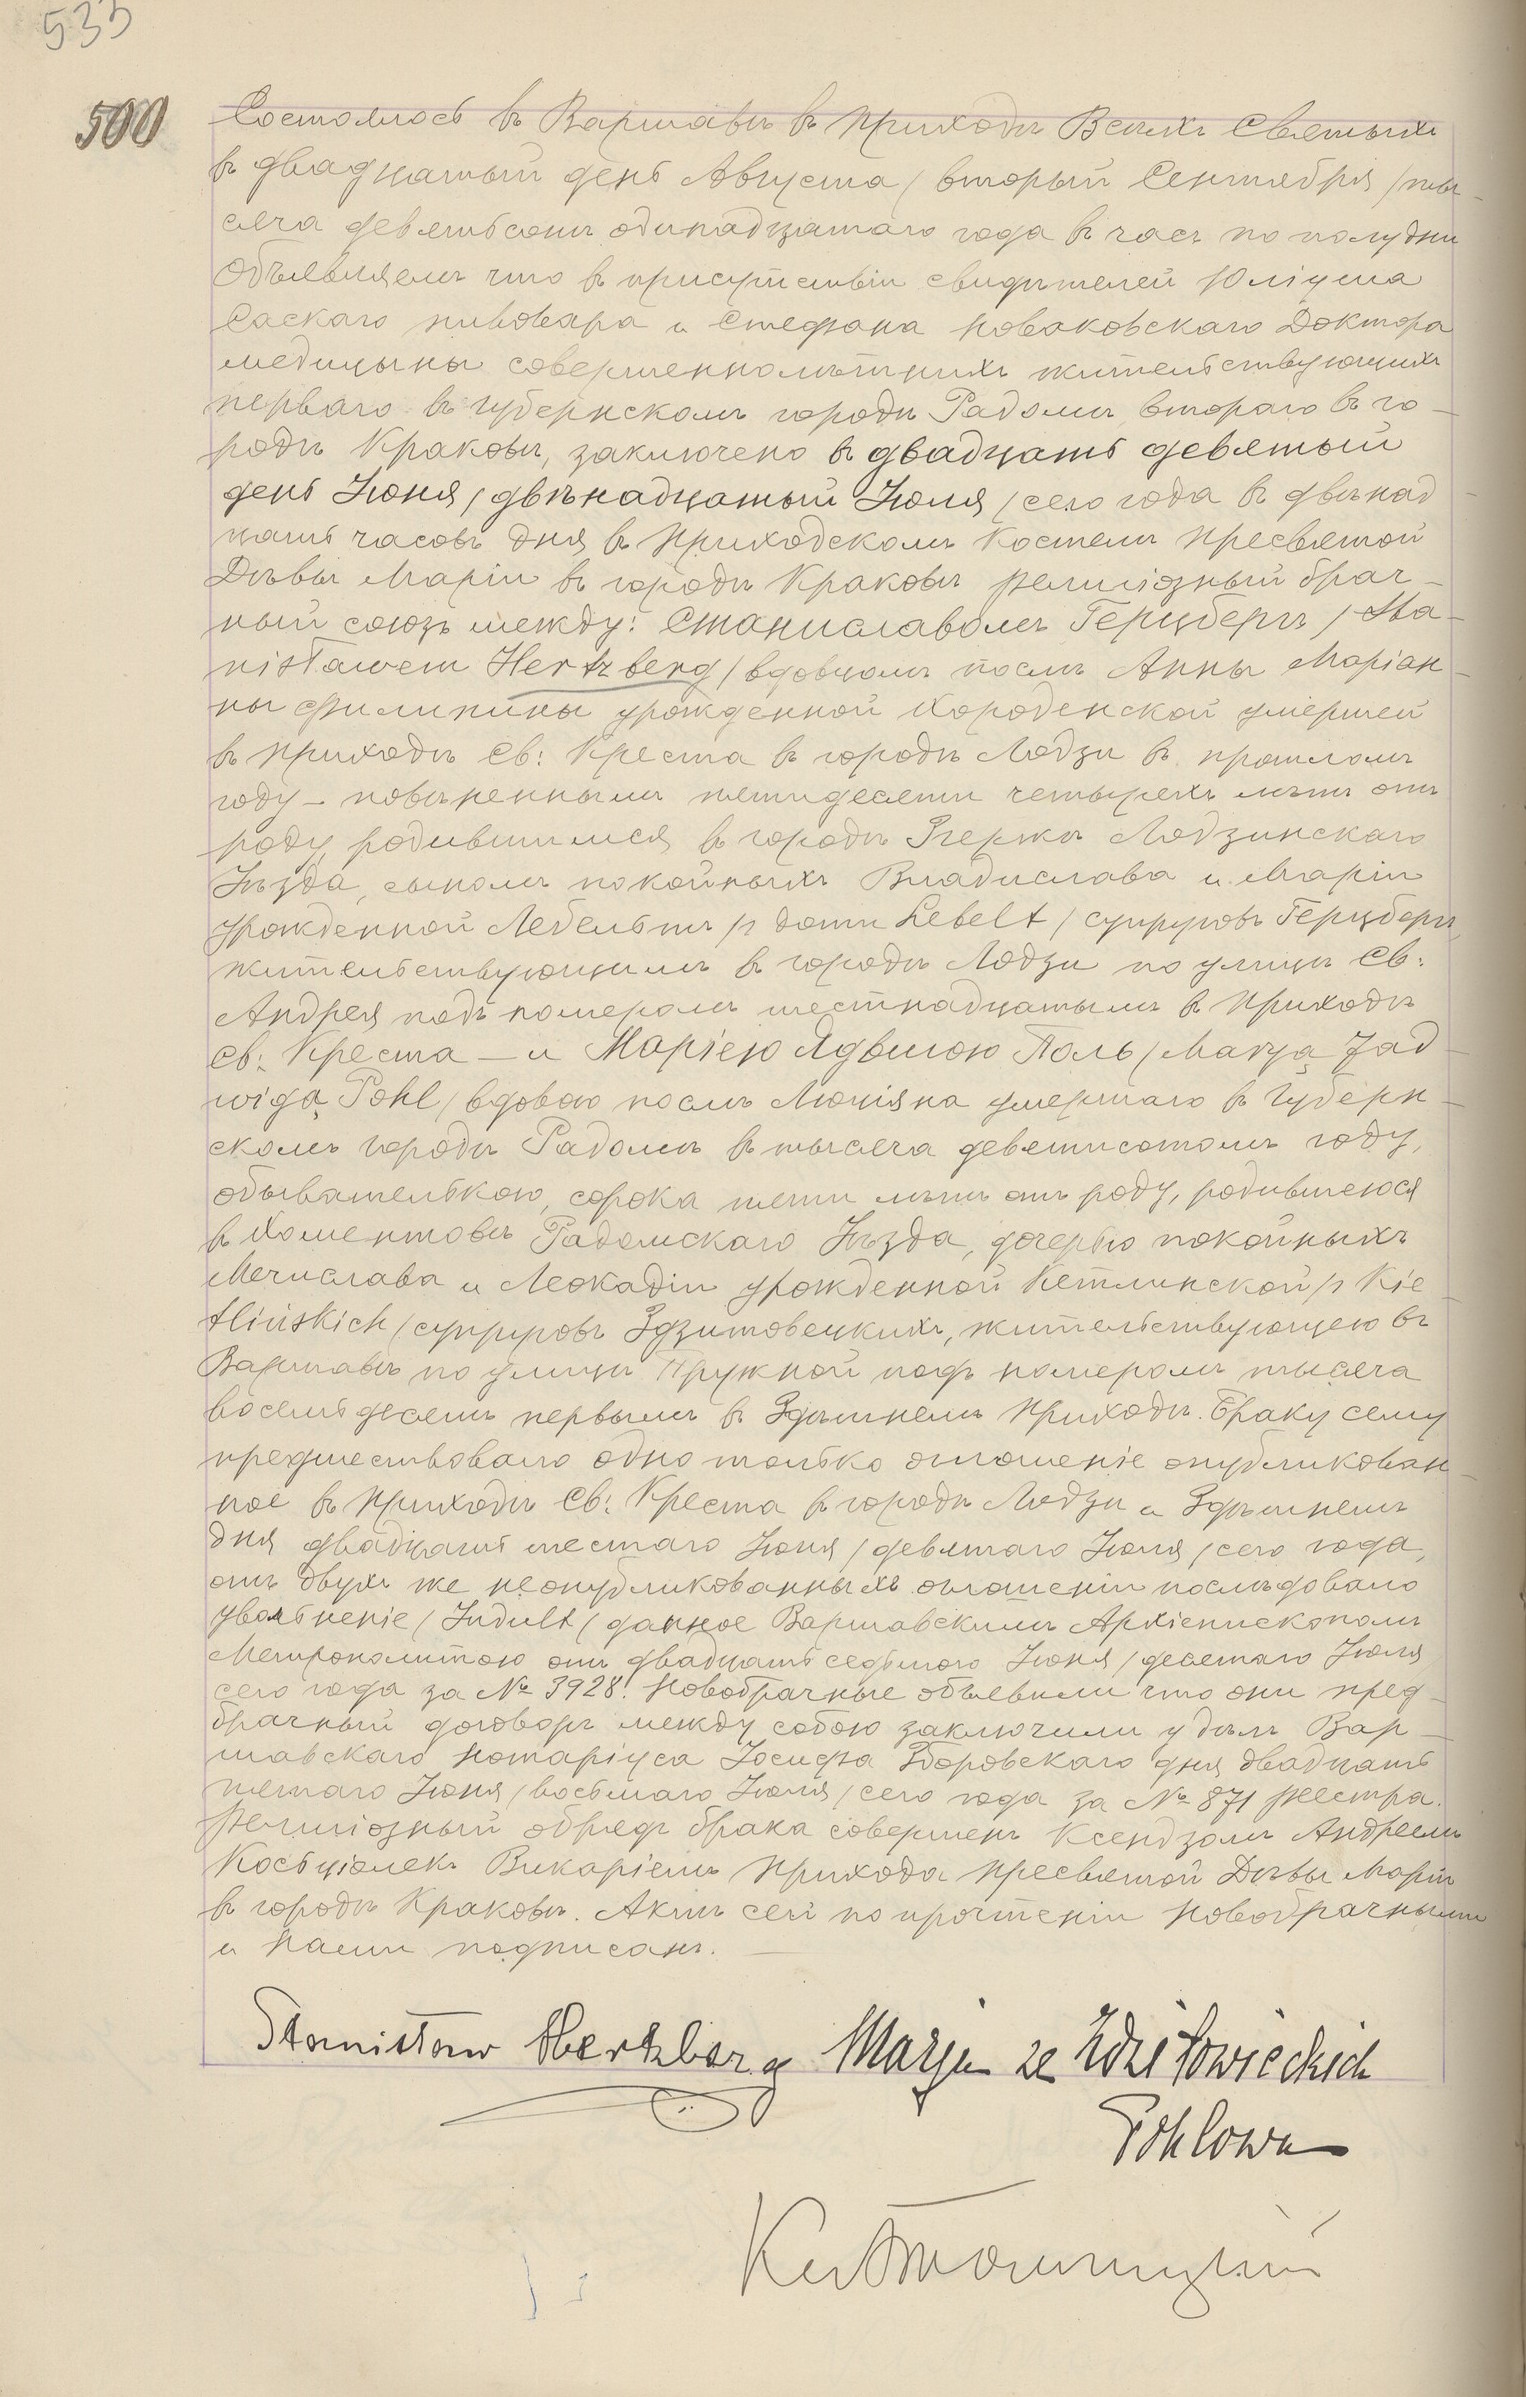 533
500
Состоялось въ Варшавѣ въ Приходѣ Всѣхъ Святыхъ
въ двадцатый день Августа / вторый Сентября / ты-
сяча девятьсотъ одинадцатаго года въ часъ по полудни
Объявляемъ что въ присутствіи свидѣтелей Юліуша
Саскаго пивовара и Стефана Новаковскаго Доктора
медицыны совершеннолѣтнихъ жительствующихъ
перваго въ губернскомъ городѣ Радомѣ втораго въ го-
родѣ Краковѣ, заключено въ двадцать девятый
день Іюня / двѣнадцатый Іюля / сего года въ двѣнад
цать часовъ дня въ Приходскомъ Костелѣ Пресвятой
Дѣвы Маріи въ городѣ Краковѣ религіозный брач-
ный союзъ между: Станиславомъ Герцбергъ / Sta-
nisławem Hertzberg / вдовцомъ послѣ Анны Маріан-
ны Филипины урожденной Хороденской умершей
въ приходѣ Св: Креста въ городѣ Лодзи въ прошломъ
году – повѣреннымъ пятидесяти четырехъ лѣтъ отъ
роду, родившимся въ городѣ Згержѣ Лодзинскаго
Уѣзда, сыномъ покойныхъ Владислава и Маріи
урожденной Лебельтъ / z domu Lebelt / супруговъ Герцбергъ,
жительствующимъ въ городѣ Лодзи по улицѣ Св:
Андрея подъ номеромъ шестнадцатымъ въ приходѣ
Св: Креста – и Маріею Ядвигою Поль / Maryą Jad-
wigą Pohl / вдовою послѣ Люціяна умершаго въ Губерн-
скомъ городѣ Радомѣ въ тысяча девятисотомъ году,
обывателькою, сорока пяти лѣтъ отъ роду, родившеюся
въ Хоментовѣ Радомскаго Уѣзда, дочерью покойныхъ
Мечислава и Леокадіи урожденной Кетлинской / z Kie-
tlińskich / супруговъ Здзитовецкихъ, жительствующею въ
Варшавѣ по улицѣ Пружной подъ номеромъ тысяча
восемьдесятъ первымъ въ Здѣшнемъ Приходѣ. Браку сему
предшествовало одно только оглашеніе опубликован-
ное въ Приходѣ Св: Креста въ городѣ Лодзи и Здѣшнемъ
дня двадцать шестаго Іюня / девятаго Іюля / сего года,
отъ двухъ же неопубликованныхъ оглашеній послѣдовало
увольненіе / Indult / данное Варшавскимъ Архіепископомъ
Митрополитою отъ двадцать седьмого Іюня / десятаго Іюля
сего года за № 3928. Новобрачные объявили что они пред-
брачный договоръ между собою заключили у дѣлъ Вар-
шавскаго Нотаріуса Іосифа Зборовскаго дня двадцать
пятаго Іюня / восьмаго Іюля / сего года за № 871 реестра.
Религіозный обрядъ брака совершенъ Ксендзомъ Андреемъ
Косьцюлекъ Викаріемъ Прихода Пресвятой Дѣвы Маріи
въ городѣ Краковѣ. Актъ сей по прочтеніи Новобрачными
и Нами подписанъ.
Stanisław Hertzberg Marja ze Zdzitowieckich
Pohlowa